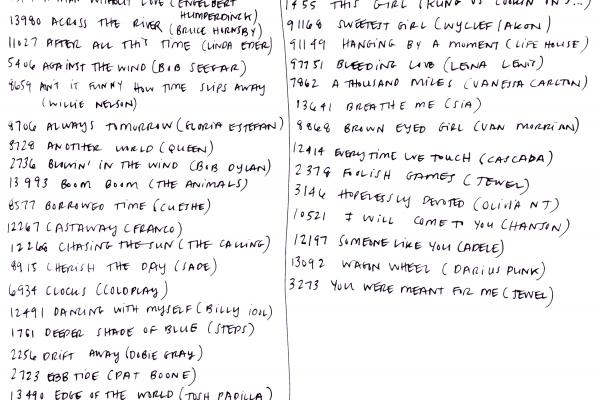 WITHOUT LOVE (ENGELBERT
HUMPERDINCK)
13980 ACROSS THE RIVER (BRUCE HORNSBY)
11027 AFTER ALL THIS TIME (LINDA EDER)
5406 AGAINST THE WIND (BOB SEEGAR)
8659 AIN'T IT FUNNY HOW TIME SLIPS AWAY
(WILLIE NELSON)
8706 ALWAYS TOMORROW (GLORIA ESTEFAN)
8728 ANOTHER WORLD (QUEEN)
2736 BLOWIN' IN THE WIND (BOB DYLAN)
13993 BOOM BOOM (THE ANIMALS)
8577 BORROWED TIME (CUESHE)
12267 CASTAWAY (FRANCO)
12268 CHASING THE SUN (THE CALLING)
8915 CHERISH THE DAY (SADE)
6934 CLOCKS (COLDPLAY)
12491 DANCING WITH MYSELF (BILLY IDOL)
1761 DEEPER SHADE OF BLUE (STEPS)
2256 DRIFT AWAY (DOBIE GRAY)
2723 EBB TIDE (PAT BOONE)
13490 EDGE OF THE WORLD (JOSH PADILLA)
1455 THIS GIRL (KUNG VS COOKIN IN 3...)
91168 SWEETEST GIRL (WYCLEF/AKON)
91149 HANGING BY A MOMENT (LIFE HOUSE)
97751 BLEEDING LOVE (LEONA LEWIS)
7862 A THOUSAND MILES (VANESSA CARLTON)
13641 BREATHE ME (SIA)
8868 BROWN EYED GIRL (VAN MORRIAN)
12414 EVERYTIME WE TOUCH (CASCADA)
2378 FOOLISH GAMES (JEWEL)
3146 HOPELESSLY DEVOTED (OLIVIA NJ)
10521 I WILL COME TO YOU (HANSON)
12197 SOMEONE LIKE YOU (ADELE)
13092 WAGN WHEEL (DARIUS PUNK)
3273 YOU WERE MEANT FOR ME (JEWEL)